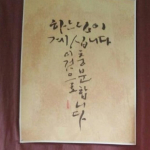 하느님이
계십니다
이것으로
충분합니다